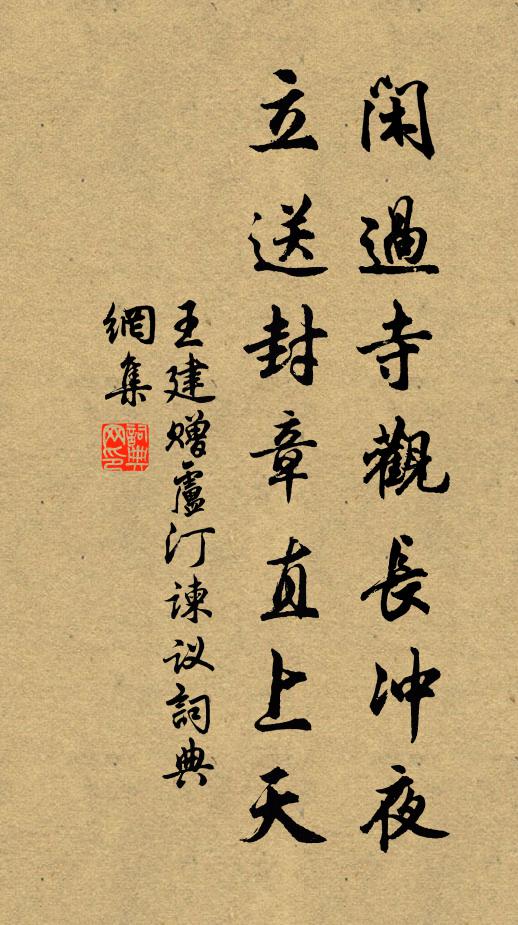 閑過寺觀長冲夜
立送封章直上天
王建赠盧汀諫议詞典
網集
詞典
网印